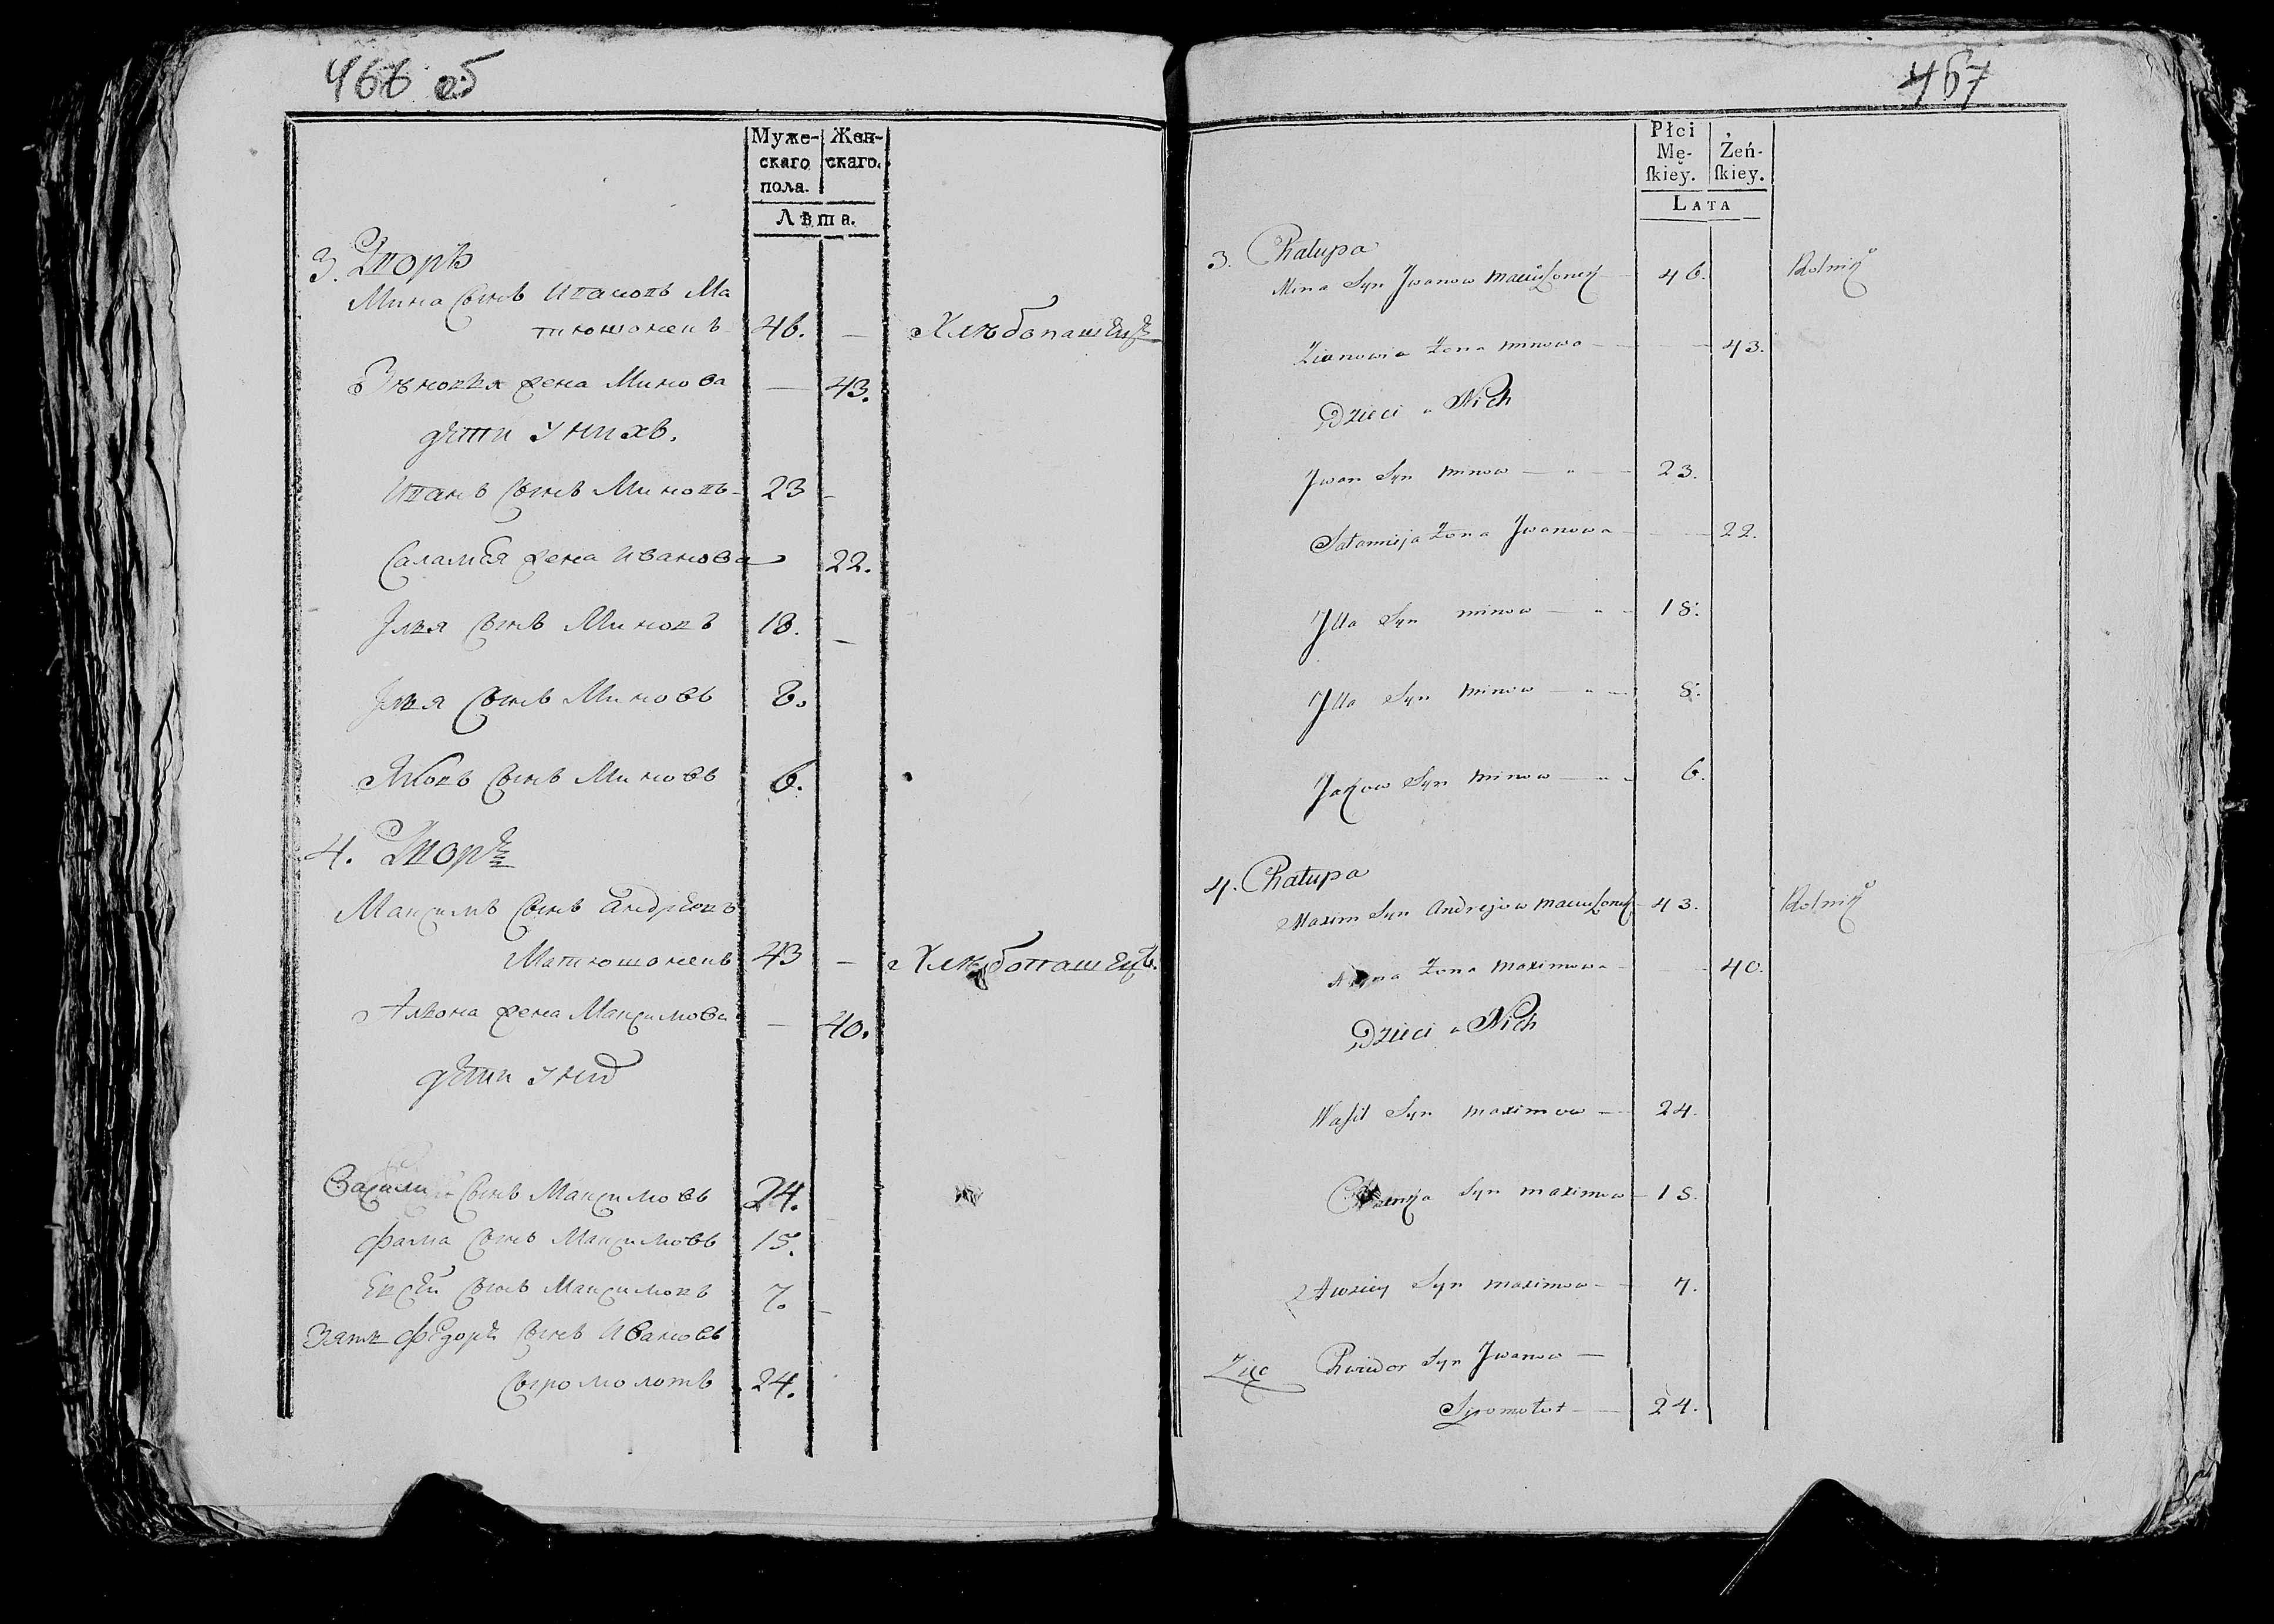 466 об
Муже-
скаго
пола.
Жен-
скаго.
Лѣта.
3. Дворъ
Мина Сынъ Ивановъ Ма
тюшонекъ 46. —
Хлѣбопашецъ
Зѣновия жена Минова — 43.
дѣти у нихъ.
Иванъ Сынъ Миновъ 23 –
Саламея жена Иванова 22.
Илья Сынъ Миновъ 18. –
Илья Сынъ Миновъ 8.
Яковъ Сынъ Миновъ 6.
4. Дворъ
Максимъ Сынъ Андреевъ
Матюшонекъ 43 –
Хлѣбопашецъ.
Алеона жена Максимова — 40.
дѣти у них
Васили Сынъ Максимовъ 24.
Фама Сынъ Максимовъ 15.
Евсей Сынъ Максимовъ 7. –
Зять Фѣдоръ Сынъ Ивановъ
Сыромолотъ 24.
467
Płci
Mę-
ſkiey.
Żeń-
ſkiey.
LATA
3. Chałupa
Mina Syn Jwanow Maciuszonek 46.
Rolnik
Zianowia Żona Minowa — 43.
Dzieci u Nich
Jwan Syn Minow — " — 23.
Sałamieja Żona Jwanowa — 22.
Jlla Syn minow — " — 18.
Jlla Syn Minow — " — 8.
Jakow Syn Minow — " — 6.
4. Chałupa
Maxim Syn Andrejow Maciuszonek 43.
Rolnik
Żona Maximowa — 40.
Dzieci u Nich
Waſil Syn Maximow — 24.
Syn Maximow — 15.
Awsiey Syn Maximow — 7.
Zięc Chwiedor Syn Jwanow —
Syromołot — 24.